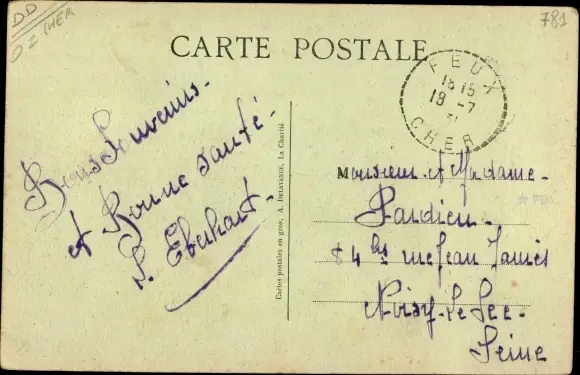 DD
CHER
781
CARTE POSTALE
FEUX
18 15
18 -7
CHER
Bons Souvenirs.
et Bonne santé.
P. Eberhart.
Cartes postales en gros, A. DELAYANCE, La Charité.
Monsieur et Madame
Pardieu.
bis rue Jean Jaurès
Noisy-le-Sec.
Seine